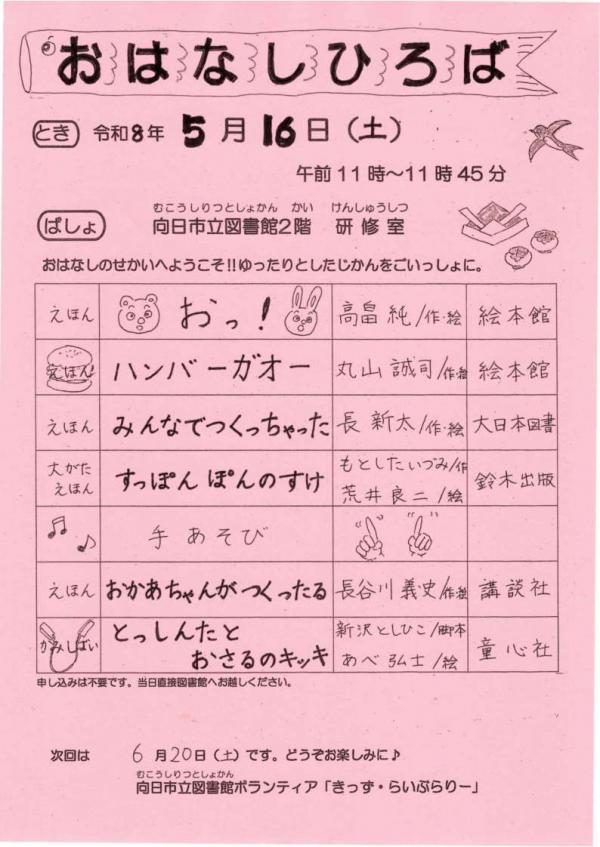 おはなしひろば
とき 令和8年 5月16日(土)
午前11時~11時45分
むこうしりつとしょかん かい けんしゅうしつ
ばしょ 向日市立図書館2階 研修室
おはなしのせかいへようこそ!!ゆったりとしたじかんをごいっしょに。
えほん おっ! 高畠 純/作・絵 絵本館
えほん ハンバーガオー 丸山 誠司/作・絵 絵本館
えほん みんなでつくっちゃった 長 新太/作・絵 大日本図書
大がた えほん すっぽん ぽんのすけ もとしたいづみ/作 荒井良二/絵 鈴木出版
手あそび
えほん おかあちゃんがつくったる 長谷川 義史/作・絵 講談社
かみしばい とっしんたと おさるのキッキ 新沢としひこ/脚本 あべ弘士/絵 童心社
申し込みは不要です。当日直接図書館へお越しください。
次回は 6月20日(土)です。どうぞお楽しみに♪
むこうしりつとしょかん
向日市立図書館ボランティア「きっず・らいぶらりー」